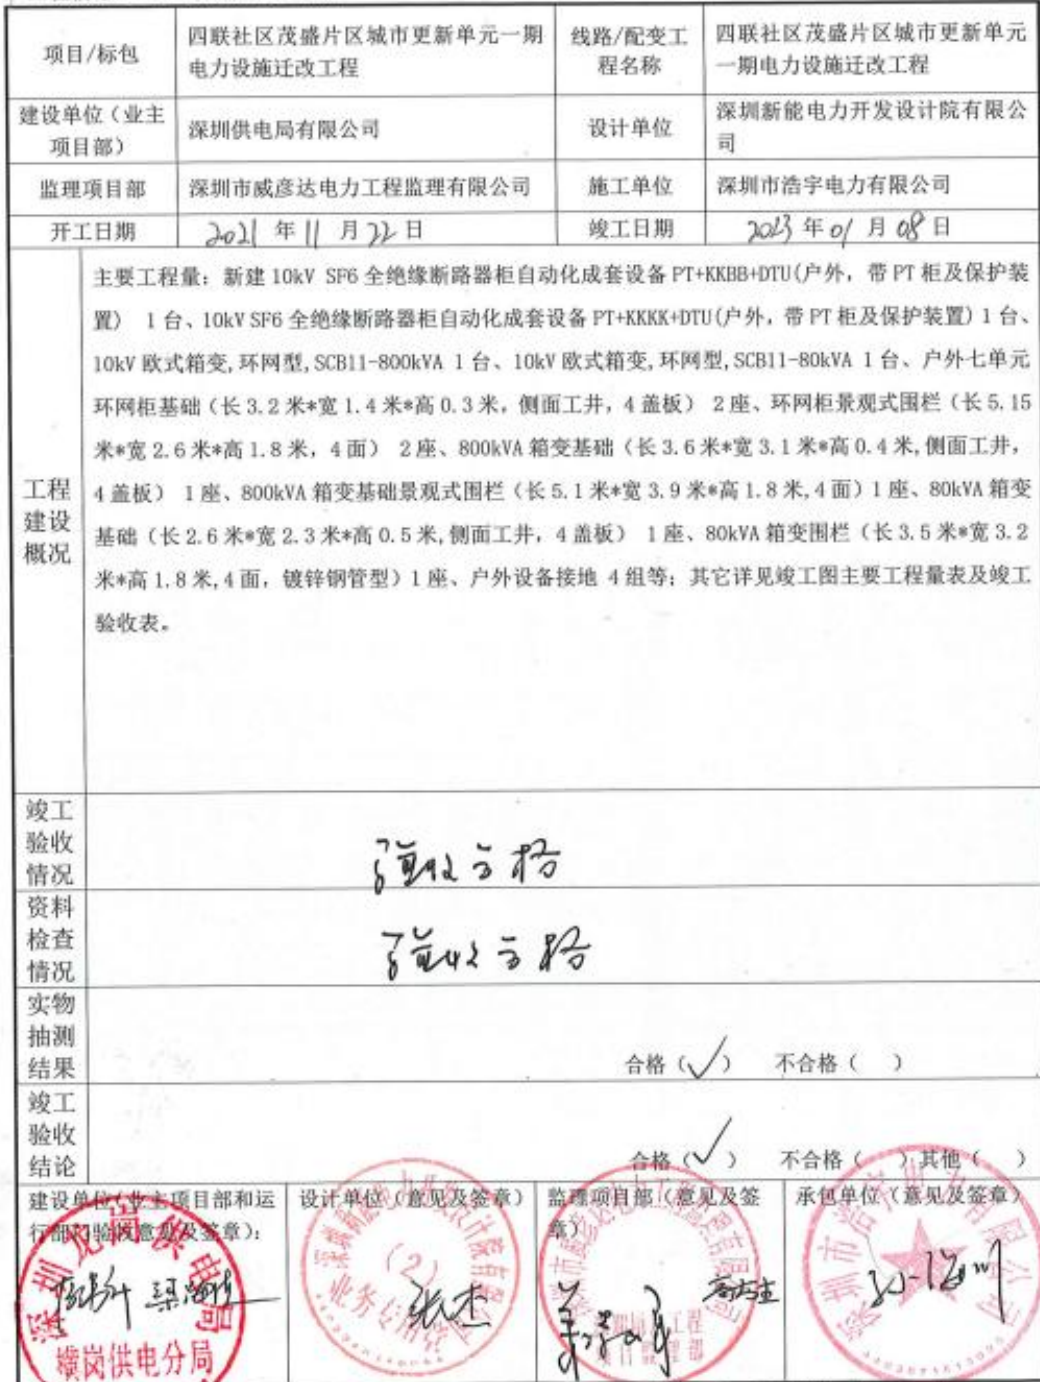 项目/标包
四联社区茂盛片区城市更新单元一期
电力设施迁改工程
线路/配变工
程名称
四联社区茂盛片区城市更新单元
一期电力设施迁改工程
建设单位（业主
项目部）
深圳供电局有限公司
设计单位
深圳新能电力开发设计院有限公
司
监理项目部
深圳市威彦达电力工程监理有限公司
施工单位
深圳市浩宇电力有限公司
开工日期
2021 年 11 月 22 日
竣工日期
2023 年 01 月 08 日
工程
建设
概况
主要工程量：新建 10kV SF6 全绝缘断路器柜自动化成套设备 PT+KKBB+DTU(户外，带 PT 柜及保护装
置） 1 台、10kV SF6 全绝缘断路器柜自动化成套设备 PT+KKKK+DTU(户外，带 PT 柜及保护装置) 1 台、
10kV 欧式箱变,环网型,SCB11-800kVA 1 台、10kV 欧式箱变,环网型,SCB11-80kVA 1 台、户外七单元
环网柜基础（长 3.2 米*宽 1.4 米*高 0.3 米，侧面工井，4 盖板） 2 座、环网柜景观式围栏（长 5.15
米*宽 2.6 米*高 1.8 米，4 面） 2 座、800kVA 箱变基础（长 3.6 米*宽 3.1 米*高 0.4 米,侧面工井，
4 盖板） 1 座、800kVA 箱变基础景观式围栏（长 5.1 米*宽 3.9 米*高 1.8 米,4 面）1 座、80kVA 箱变
基础（长 2.6 米*宽 2.3 米*高 0.5 米,侧面工井，4 盖板） 1 座、80kVA 箱变围栏（长 3.5 米*宽 3.2
米*高 1.8 米,4 面，镀锌钢管型）1 座、户外设备接地 4 组等；其它详见竣工图主要工程量表及竣工
验收表。
竣工
验收
情况
验收合格
资料
检查
情况
验收合格
实物
抽测
结果
合格（✓） 不合格（ ）
竣工
验收
结论
合格（✓） 不合格（ ）其他（ ）
建设单位（业主项目部和运
行部门验收意见及签章）：
设计单位（意见及签章）
监理项目部（意见及签
章）
承包单位（意见及签章）
深圳龙岗供电局
横岗供电分局
（2）
业务专用章
张杰
深圳市浩宇电力有限公司